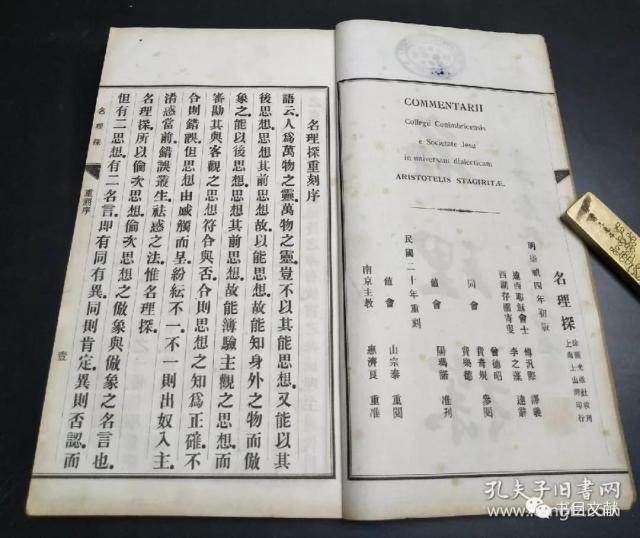 COMMENTARII
Collegii Conimbricensis
e Societate Jesu
in universam dialecticam
ARISTOTELIS STAGIRITÆ.
名理探
徐匯光啟社校刊
上海土山灣印行
明崇禎四年初版
遠西耶穌會士
傅汎際 譯義
西湖存園寄叟
李之藻 達辭
同會
曾德昭
費奇規 參閱
費樂德
值會
陽瑪諾 准刊
民國二十年重刻
值會
山宗泰 重閱
南京主教
惠濟良 重准
名理探重刻序
語云人爲萬物之靈萬物之靈豈不以其能思想又能以其
後思想思想其前思想故以能思想故能知身外之物而倣
象之能以後思想思想其前思想故能簿驗主觀之思想而
審勘其與客觀之思想符合與否合則思想之知爲正確不
合則錯誤但思想由感觸而呈紛紜不一不一則出奴入主
淆惑當前錯誤叢生祛惑之法惟名理探
名理探所以倫次思想之倣象與倣象之名言也
但有二思想有二名言即有同有異同則肯定異則否認而
名理探
重刻序
壹
孔夫子旧书网
书目文献